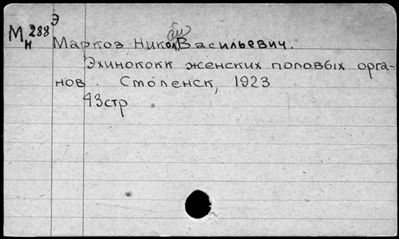 Э
М 288
н
Марков, Николай Васильевич.
Эхинококк женских половых орга-
нов. Смоленск, 1923
43стр